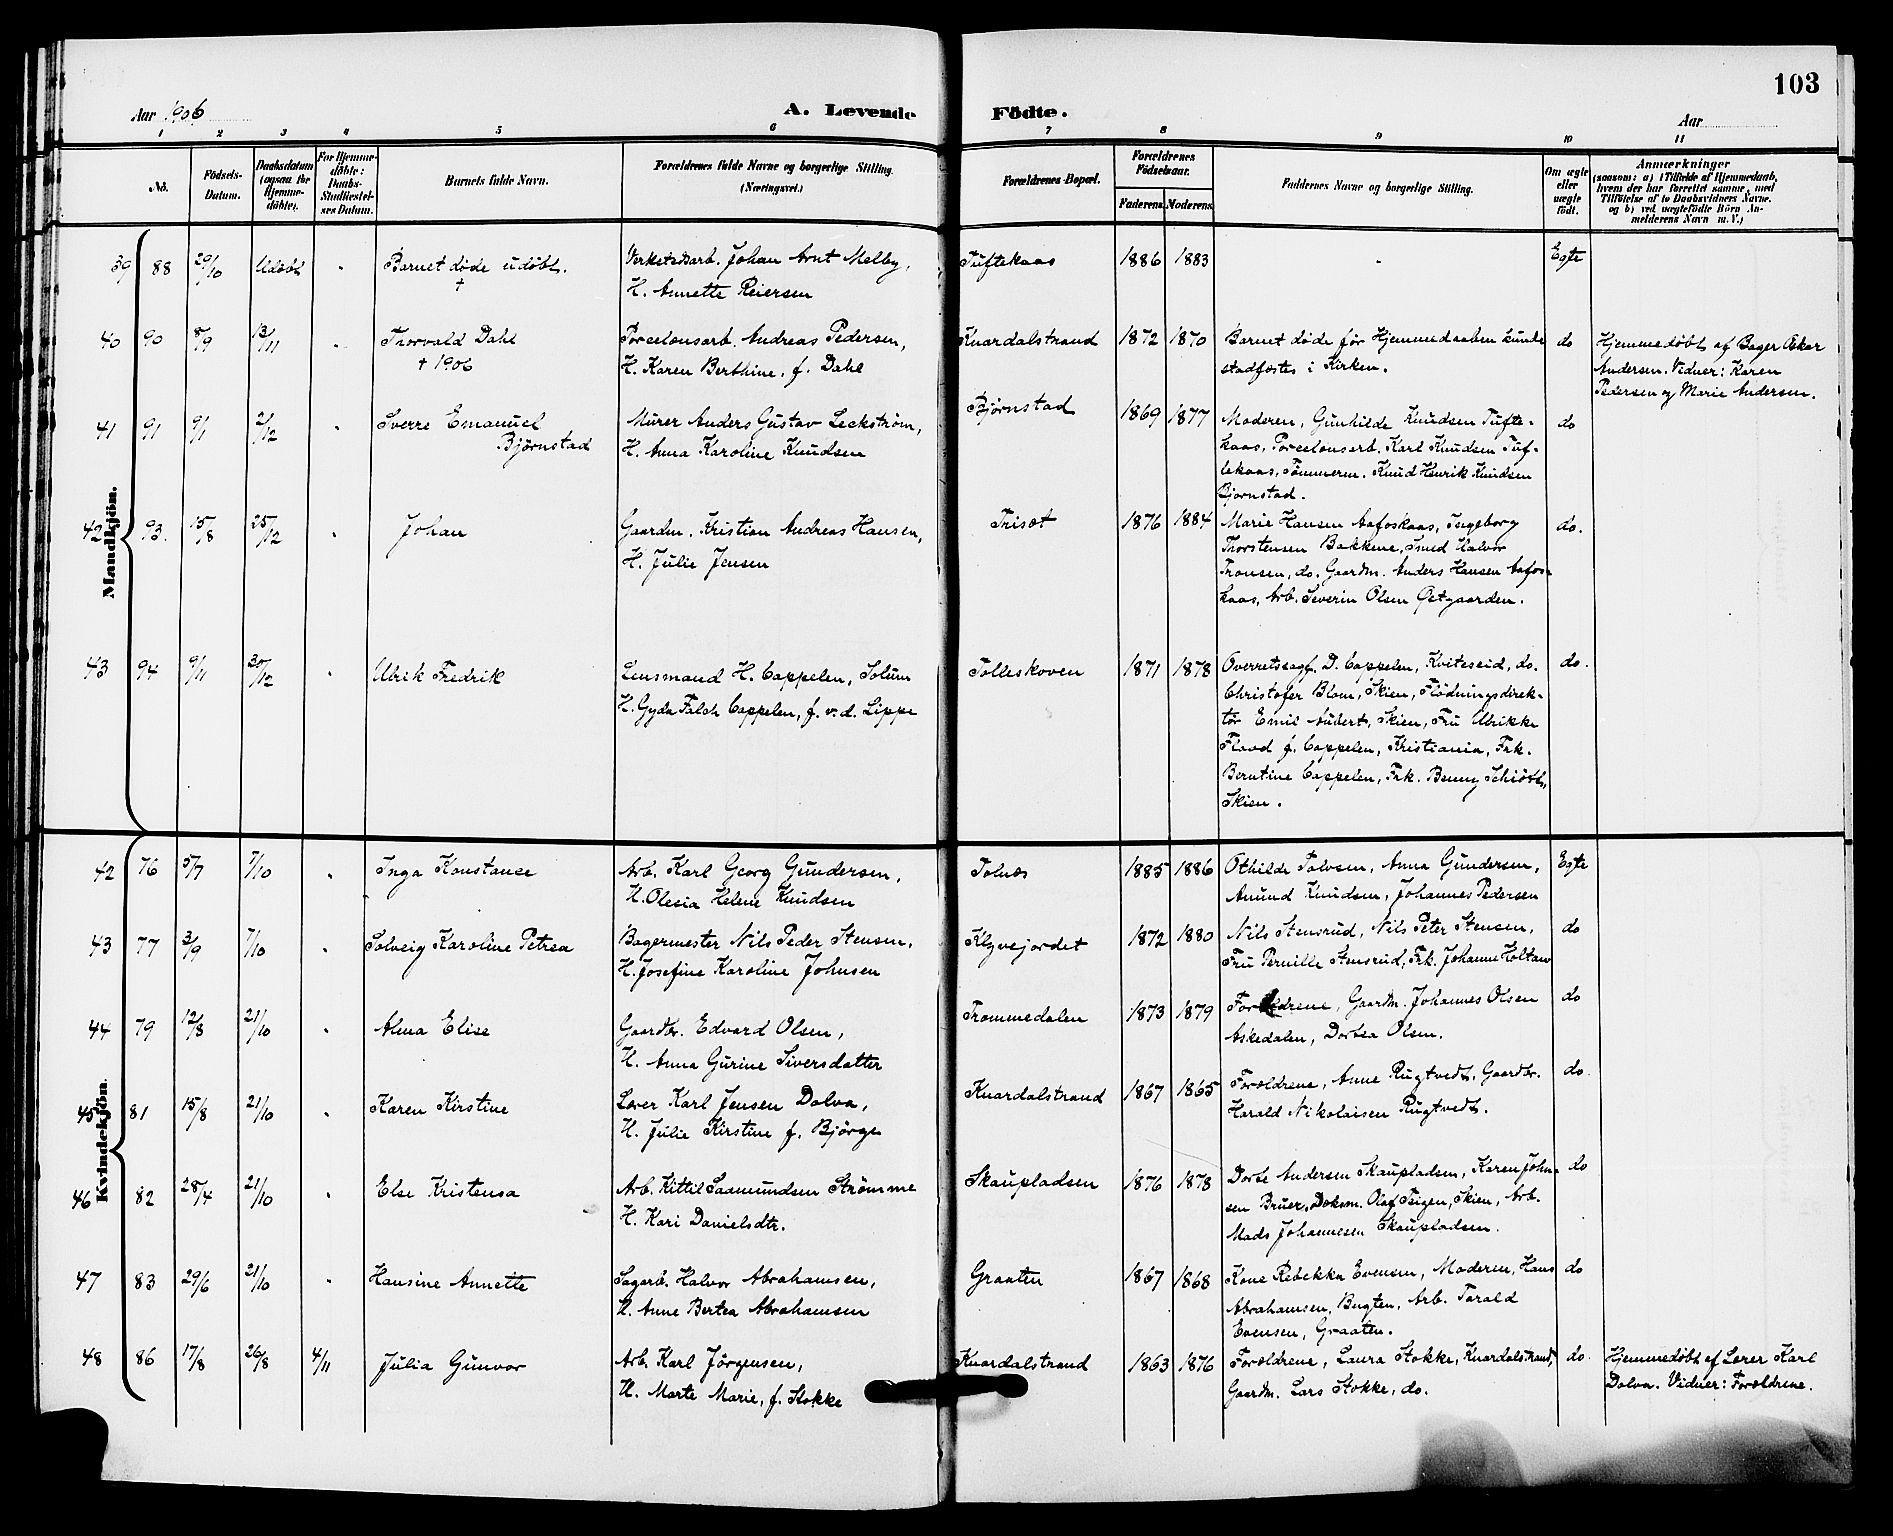 103
Aar 1906 A. Levende Födte. Aar
1 2 3 4 5 6 7 8 9 10 11
No. | Födsels-Datum. | Daabsdatum (ogsaa for Hjemmedöbte). | For Hjemmedöbte: Daabs-Stadfæstelses Datum. | Barnets fulde Navn. | Forældrenes fulde Navne og borgerlige Stilling. (Næringsvei.) | Forældrenes Bopæl. | Forældrenes Födselsaar. Faderens. Moderens. | Faddernes Navne og borgerlige Stilling. | Om ægte eller uægte födt. | Anmærkninger (saasom: a) i Tilfælde af Hjemmedaab, hvem der har forrettet samme, med Tilföielse af to Daabsvidners Navne, og b) ved uægtefödte Börn Anmelderens Navn m. V.)
Mandkjön.
39 88 29/10 Udøbt " Barnet døde udøbt. †
Verksarb. Johan Arnt Melby,
H. Annette Reiersen
Tuftekaas 1886 1883 Egte
40 90 8/9 13/11 " Thorvald Dahl
† 1906
Porcelænsarb. Andreas Pedersen,
H. Karen Berthine, f. Dahl
Knardalstrand 1872 1870
Barnet døde før Hjemmedaaben kunde
stadfæstes i Kirken.
do
Hjemmedøbt af Bager Oskar
Andersen. Vidner: Karen
Pedersen og Marie Andersen.
41 91 9/1 2/12 " Sverre Emanuel
Bjørnstad
Murer Anders Gustav Leckström,
H. Anna Karoline Knudsen
Bjørnstad 1869 1877
Moderen, Gunhilde Knudsen Tufte-
kaas, Porcelænsarb. Karl Knudsen Tuf-
tekaas, Tømmerm. Knud Henrik Knudsen
Bjørnstad.
do
42 93. 15/8 25/12 " Johan
Gaardm. Kristian Andreas Hansen,
H. Julie Jensen
Trisæt 1876 1884
Marie Hansen Aafoskaas, Ingeborg
Thorstensen Bakkene, Smed Halvor
Fransen, do. Gaardm. Anders Hansen Aafos-
kaas, Arb. Severin Olsen Østgaarden.
do.
43 94 9/11 30/12 " Ulrik Fredrik
Lensmand H. Cappelen, Solum
H. Gyda Falch Cappelen, f. v. d. Lippe
Tolleskoven 1871 1878
Overretssagf. D. Cappelen, Kviteseid, do.
Christofer Blom, Skien, Flödningsdirek-
tör Emil Aubert, Skien, Fru Ulrikke
Flood f. Cappelen, Kristiania, Frk.
Berntine Cappelen, Frk. Benny Schiøtt,
Skien.
do.
Kvindekjön.
42 76 5/7 7/10 " Inga Konstance
Arb. Karl Georg Gundersen,
H. Olesia Helene Knudsen
Tolnæs 1885 1886
Othilde Tolvsen, Anna Gundersen,
Amund Knudsen, Johannes Pedersen
Egte
43 77 3/9 7/10 " Solveig Karoline Petrea
Bagermester Nils Peder Stensen,
H. Josefine Karoline Johnsen
Klyvejordet 1872 1880
Nils Stensrud, Nils Peter Stensen,
Fru Pernille Stensrud, Frk. Johanne Holtan
do
44 79 12/8 21/10 " Alma Elise
Gaardbr. Edvard Olsen,
H. Anna Gurine Siversdatter
Trommedalen 1873 1879
Forældrene, Gaardm. Johannes Olsen
Askedalen, Dorthea Olsen.
do
45 81 15/8 21/10 " Karen Kirstine
Lærer Karl Jensen Dolva,
H. Julie Kirstine f. Bjørge
Knardalstrand 1867 1865
Forældrene, Anne Rugtvedt, Gaardbr.
Harald Nikolaisen Rugtvedt.
do.
46 82 28/4 21/10 " Else Kristensa
Arb. Kittil Saamundsen Strømme
H. Kari Danielsdtr.
Skaupladsen 1876 1878
Dorte Andersen Skaupladsen, Karen John-
sen Bruer, Olaf Skien, Arb.
Mads Johannesen Skaupladsen.
do
47 83 29/6 21/10 " Hansine Annette
Sagarb. Halvor Abrahamsen,
H. Anne Bertea Abrahamsen
Graaten 1867 1868
Kone Rebekka Evensen, Moderen, Hans
Abrahamsen, Bugten, Arb. Torald
Evensen, Graaten.
do
48 86 17/8 26/8 4/11 Julia Gunvor
Arb. Karl Jørgensen,
H. Marte Marie, f. Stokke
Knardalstrand 1863 1876
Forældrene, Laura Stokke, Knardalstrand,
Gaardm. Lars Stokke, do.
do.
Hjemmedøbt af Lærer Karl
Dolva. Vidner: Forældrene.